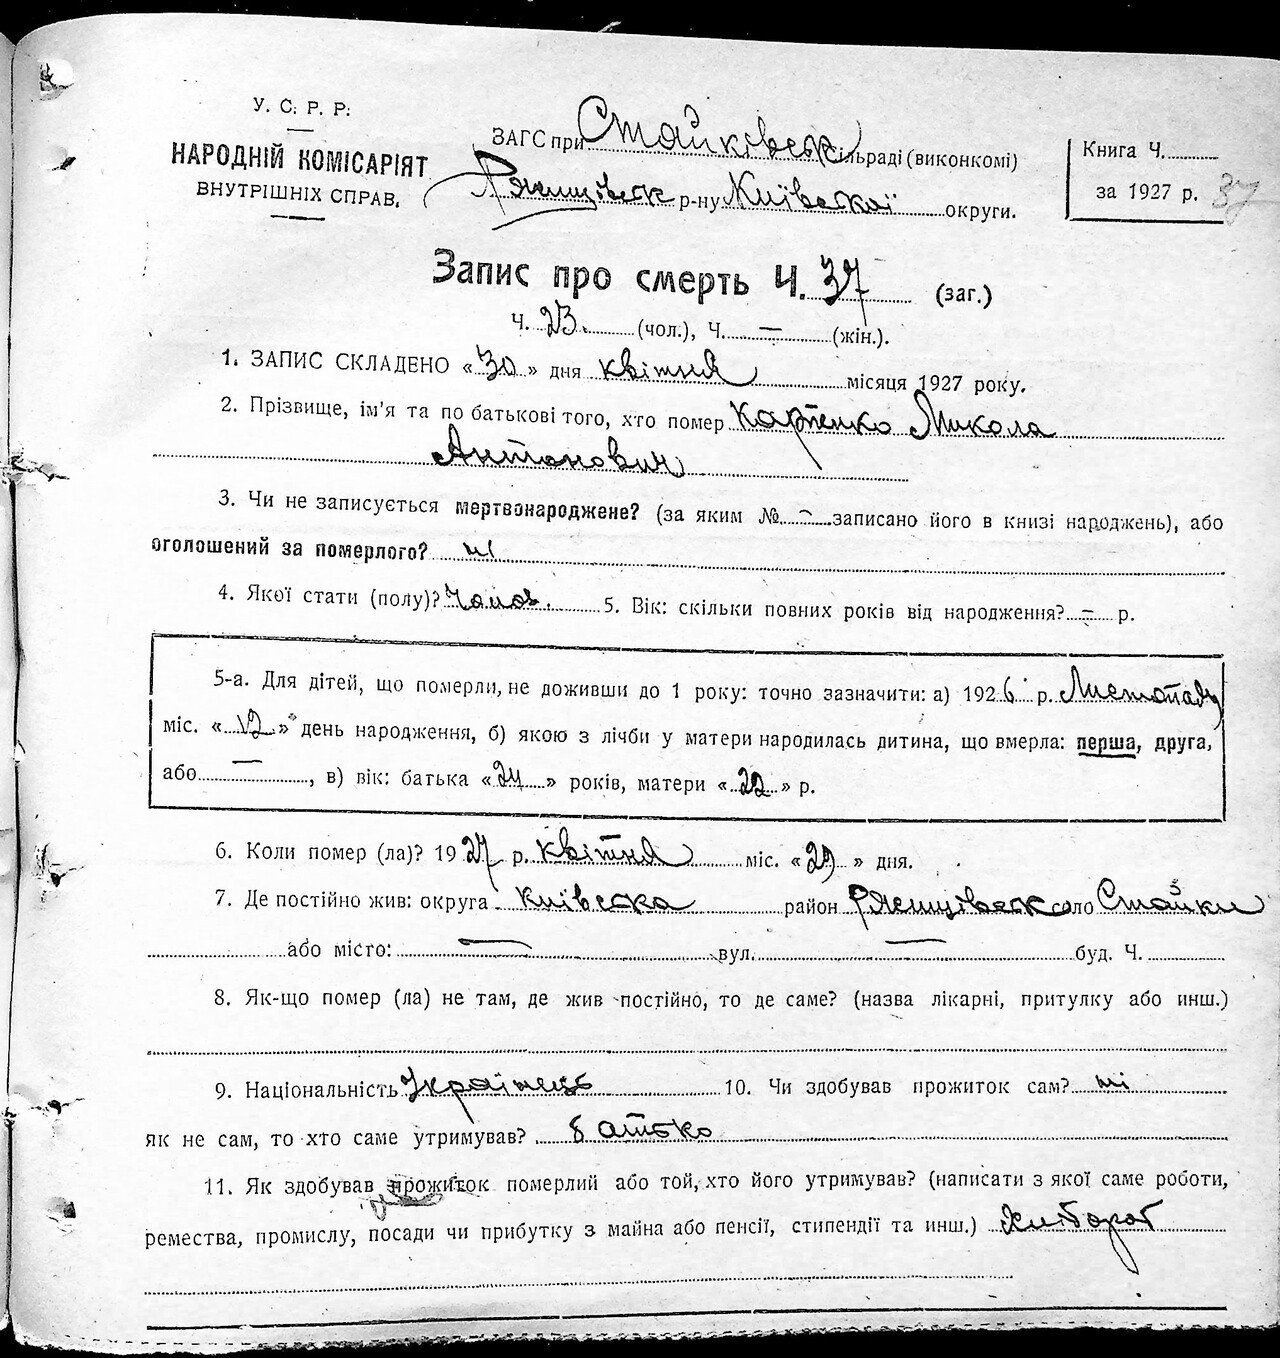 У. С. Р. Р.
НАРОДНІЙ КОМІСАРІЯТ
ВНУТРІШНІХ СПРАВ.
ЗАГС при Стайківськ сільраді (виконкомі)
Ржищівськ р-ну Київської округи.
Книга Ч.
за 1927 р. 37
Запис про смерть Ч. 37 (заг.)
Ч. 23. (чол.), Ч. — (жін.).
1. ЗАПИС СКЛАДЕНО «30» дня квітня місяця 1927 року.
2. Прізвище, ім'я та по батькові того, хто помер Карпенко Микола
Антонович
3. Чи не записується мертвонароджене? (за яким № – записано його в книзі народжень), або
оголошений за померлого? ні
4. Якої стати (полу)? Чолов. 5. Вік: скільки повних років від народження? – р.
5-а. Для дітей, що померли, не доживши до 1 року: точно зазначити: а) 1926 р. Листопада
міс. «12» день народження, б) якою з лічби у матери народилась дитина, що вмерла: перша, друга,
або —, в) вік: батька «24» років, матери «22» р.
6. Коли помер (ла)? 1927 р. квітня міс. «29» дня.
7. Де постійно жив: округа Київська район Ржищівськ село Стайки
або місто: — вул. — буд. Ч.
8. Як-що помер (ла) не там, де жив постійно, то де саме? (назва лікарні, притулку або инш.)
9. Національність Українець 10. Чи здобував прожиток сам? ні
як не сам, то хто саме утримував? батько
11. Як здобував прожиток померлий або той, хто його утримував? (написати з якої саме роботи,
ремества, промислу, посади чи прибутку з майна або пенсії, стипендії та инш.) Хлібороб